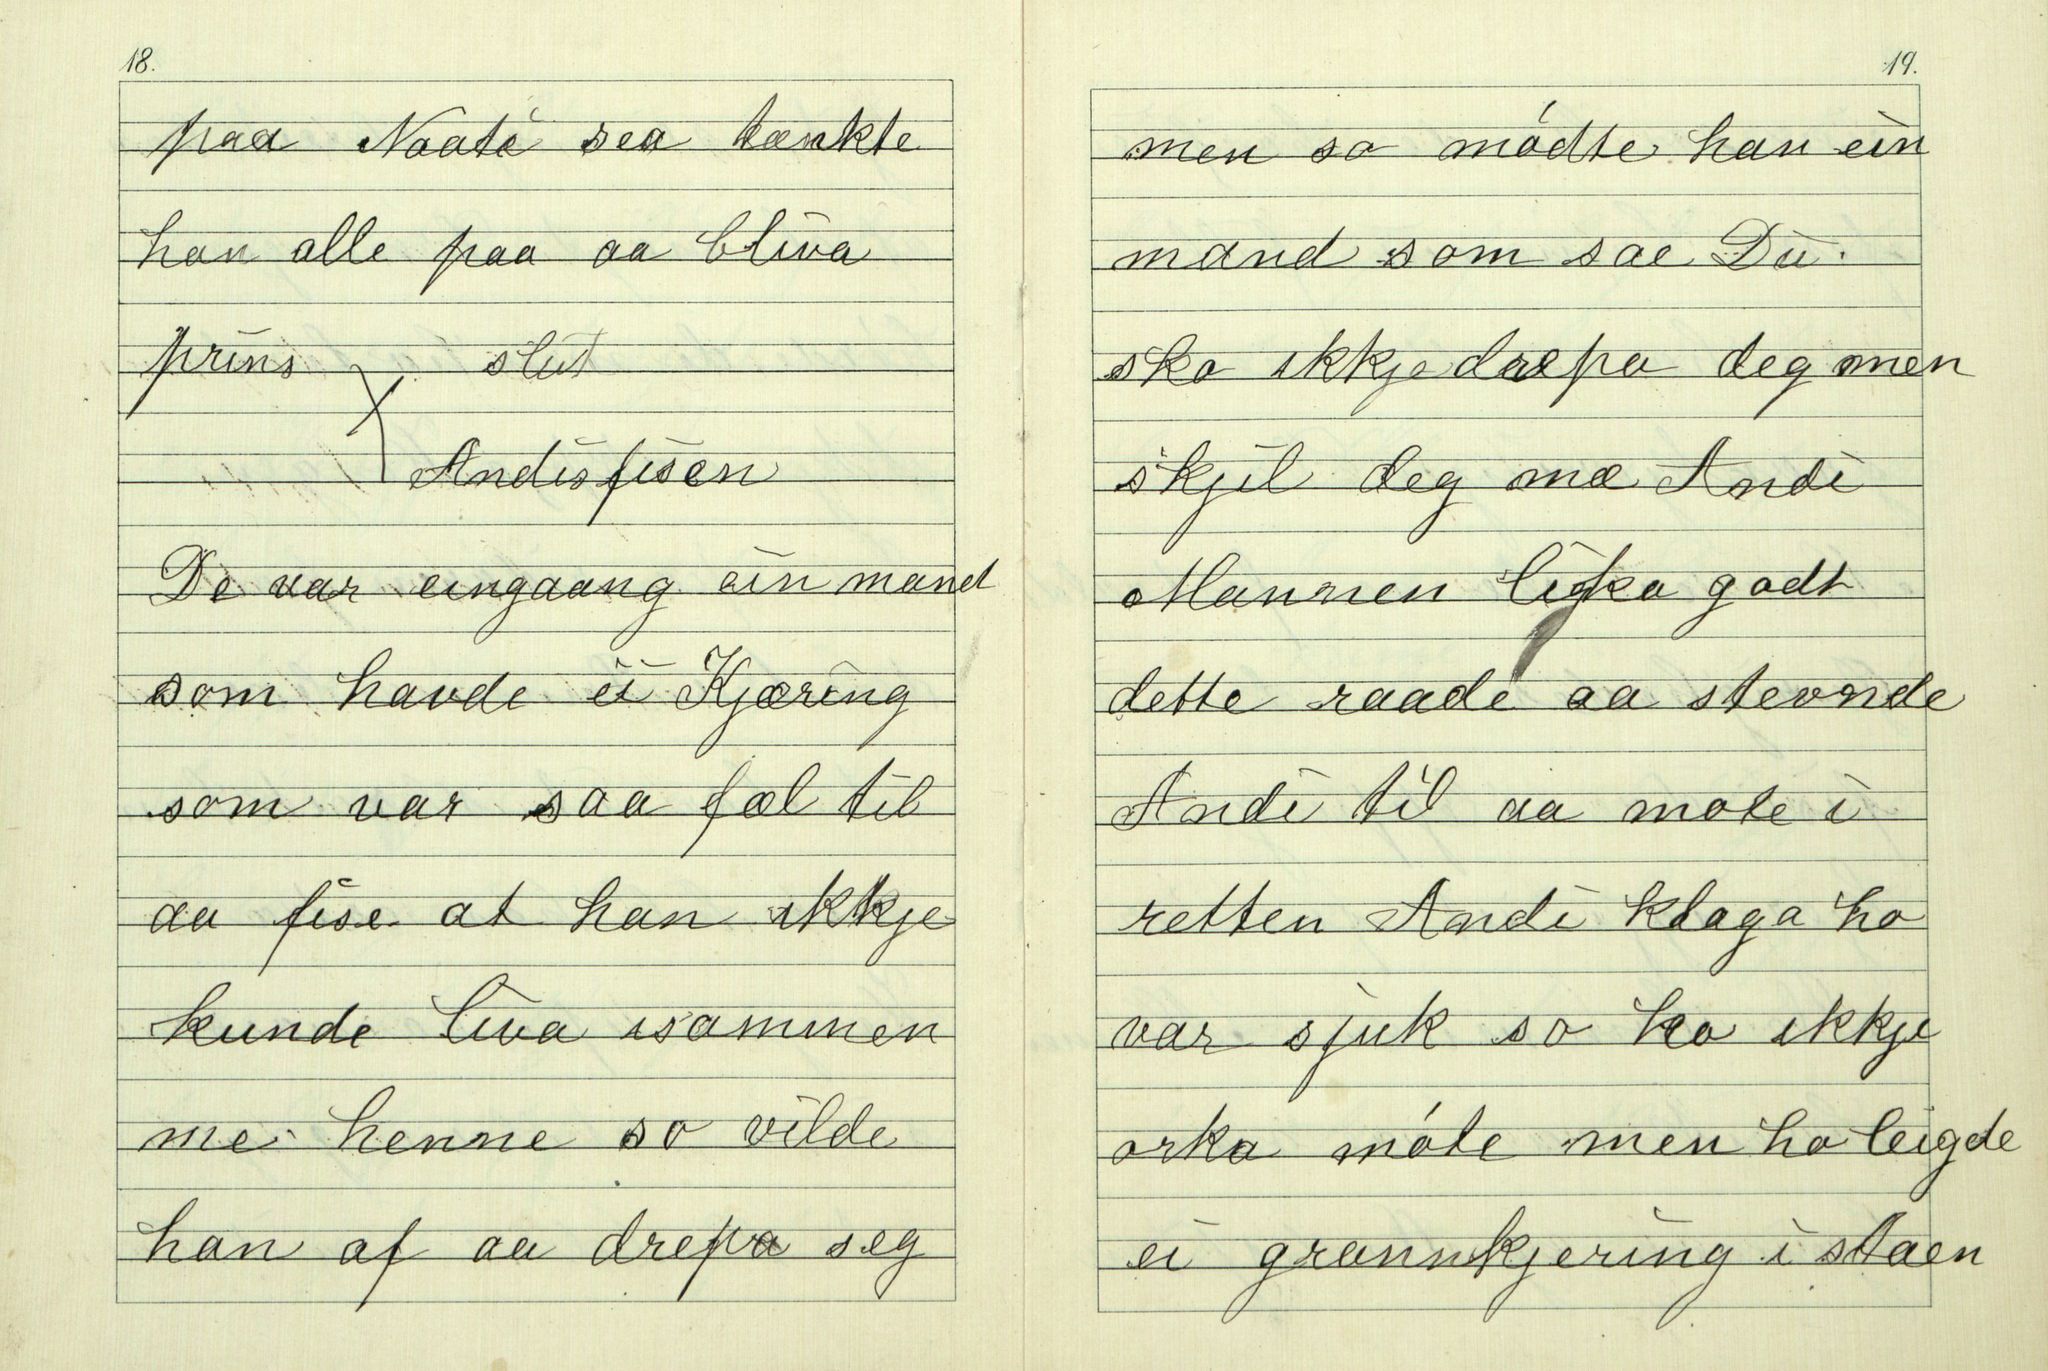 18.
paa Naate sea tænkte
han alle paa aa bliva
prins slut
Andisfisen
De var eingaang ein mand
som havde ei Kjæring
som var saa fæl til
aa fise at han ikkje
kunde liva isammen
me henne so vilde
han af aa drepa seg
19.
men so mödte han ein
mand som sae Du
ska ikkje drepa deg men
skjil deg mæ Andi
Mannen lika godt
dette raade aa stevnde
Andi til aa mote i
retten Andi klaga ho
var sjuk so ho ikkje
orka móte men ho leigde
ei grannkjering i staen